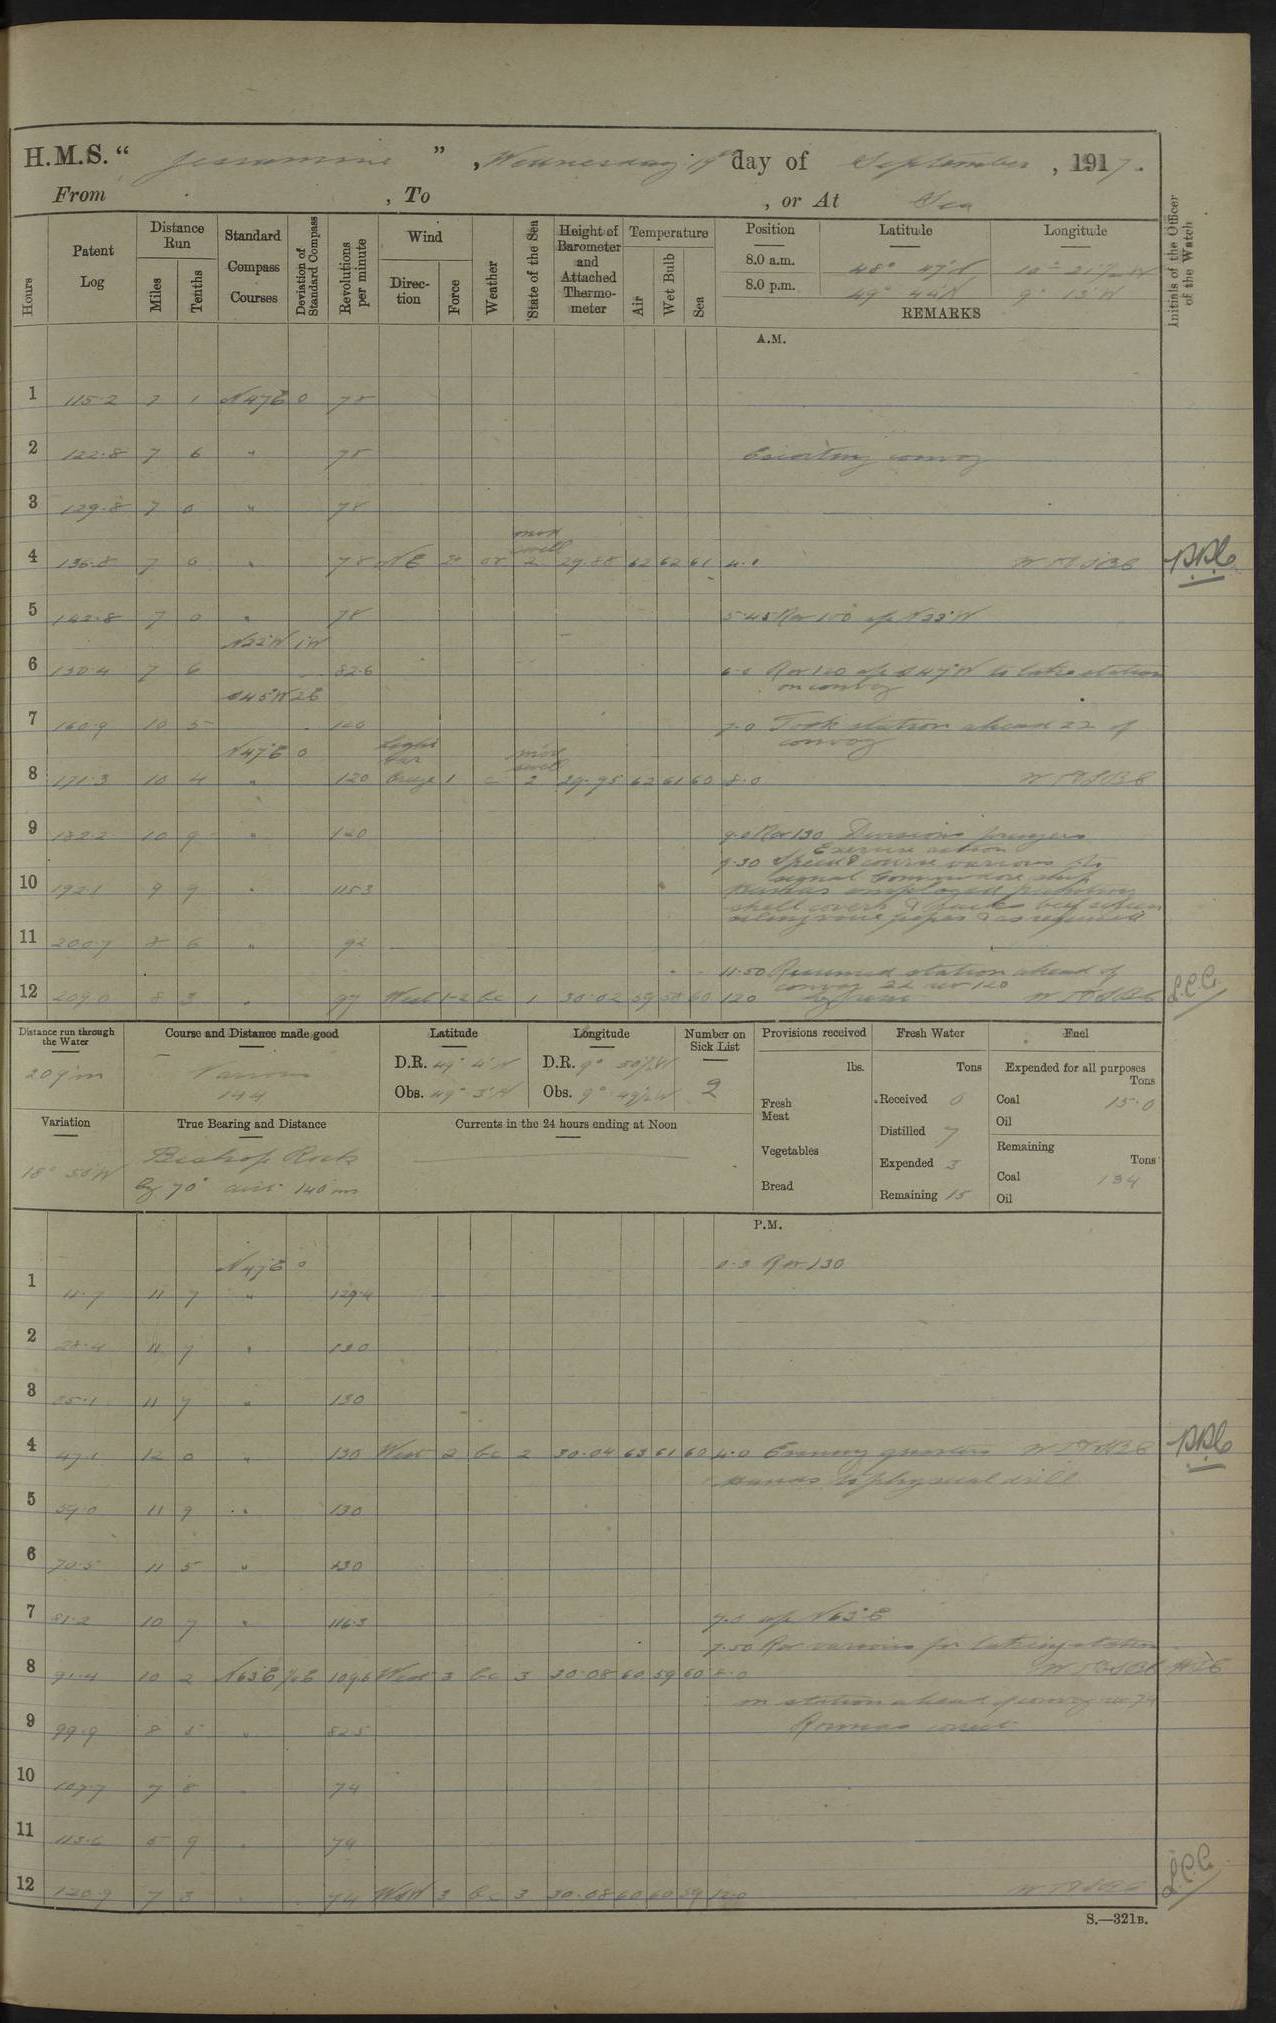 H.M.S. “ Jessamine ” , Wednesday 19th day of September , 1917.
From , To , or At Sea
Hours
Patent Log
Distance Run
Miles
Tenths
Standard Compass Courses
Deviation of Standard Compass
Revolutions per minute
Wind
Direction
Force
Weather
State of the Sea
Height of Barometer and Attached Thermometer
Temperature
Air
Wet Bulb
Sea
Position Latitude Longitude
8.0 a.m. 48° 47'N 10° 21½ W
8.0 p.m. 49° 44'N 9° 13'W
REMARKS
Initials of the Officer of the Watch
A.M.
1 115.2 7 1 N47E 0 78
2 122.8 7 6 " 78 Escorting convoy
3 129.8 7 0 " 78
mod swell
4 136.8 7 0 " 78 NE 2 29.88 62 62 61 4.0
5 142.8 7 0 " 78 5.45 Rev 100 a/c N22°W
N22°W 1W
6 150.4 7 6 82.6 6.0 Rev 120 a/c S47°W to take station
on convoy
S45°W 2E
7 160.9 10 5 120 7.0 Took station ahead 22 of
convoy
N47E 0 light mod swell
8 171.3 10 4 " 120 1 c 2 29.95 62 61 60 8.0
9 182.2 10 9 " 120 9.0 Rev 130 Divisions prayers
Exercise action
9.30 Speed & course various to
signal Commodore ship
10 192.1 9 9 " 115.3 Hands employed
11 200.7 8 6 " 92
11.50 Resumed station ahead of
convoy 22 rev 120
12 209.0 8 3 " 97 West 1-2 bc 1 30.02 59 58 60 120
Distance run through the Water
209m
Course and Distance made good
Various
144
Latitude
D.R. 49° 4'N
Obs. 49° 3'N
Longitude
D.R. 9° 50½W
Obs. 9° 49½W
Number on Sick List
2
Provisions received
lbs.
Fresh Meat
Vegetables
Bread
Fresh Water
Tons
Received 0
Distilled 7
Expended 3
Remaining 15
Fuel
Expended for all purposes
Tons
Coal 15.0
Oil
Remaining
Tons
Coal 134
Oil
Variation
18° 50'W
True Bearing and Distance
Bishop Rock
by 70° dist 140 m
Currents in the 24 hours ending at Noon
P.M.
N47E 0 0.3 Rev 130
1 11.7 11 7 " 129.4
2 23.4 11 7 " 130
3 35.1 11 7 " 130
4 47.1 12 0 " 130 West 2 bc 2 30.04 63 61 60 4.0 Evening quarters
Hands to physical drill
5 59.0 11 9 " 130
6 70.5 11 5 " 130
7 81.2 10 7 " 116.3 7.0 a/c N63°E
7.50 Rev various for taking station
8 91.4 10 2 N63E ½E 109.6 West 3 bc 3 30.08 60 59 60 8.0
In station ahead of convoy rev 74
9 99.9 8 5 " 82.5 Rounds correct
10 107.7 7 8 " 74
11 113.6 5 9 " 74
12 120.9 7 3 " 74 WSW 3 bc 3 30.08 60 60 59 12.0
S.—321B.